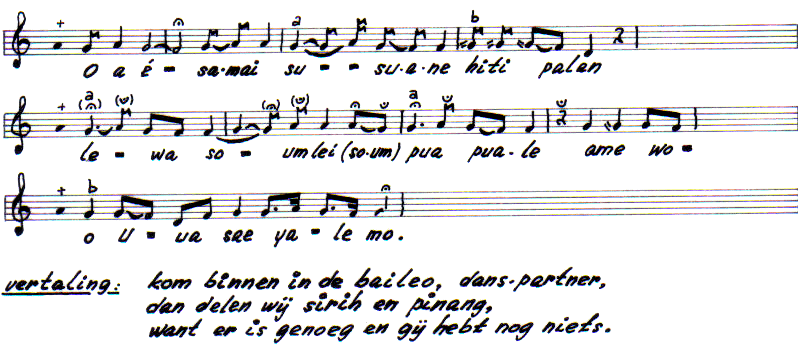 O a é = sa·mai su = = su·a·ne hiti palan
le = wa so = umlei (so·um) pua pua·le ame wo =
o u = ua sae ya = le mo.
vertaling: kom binnen in de baileo, dans-partner,
dan delen wij sirih en pinang,
want er is genoeg en gij hebt nog niets.